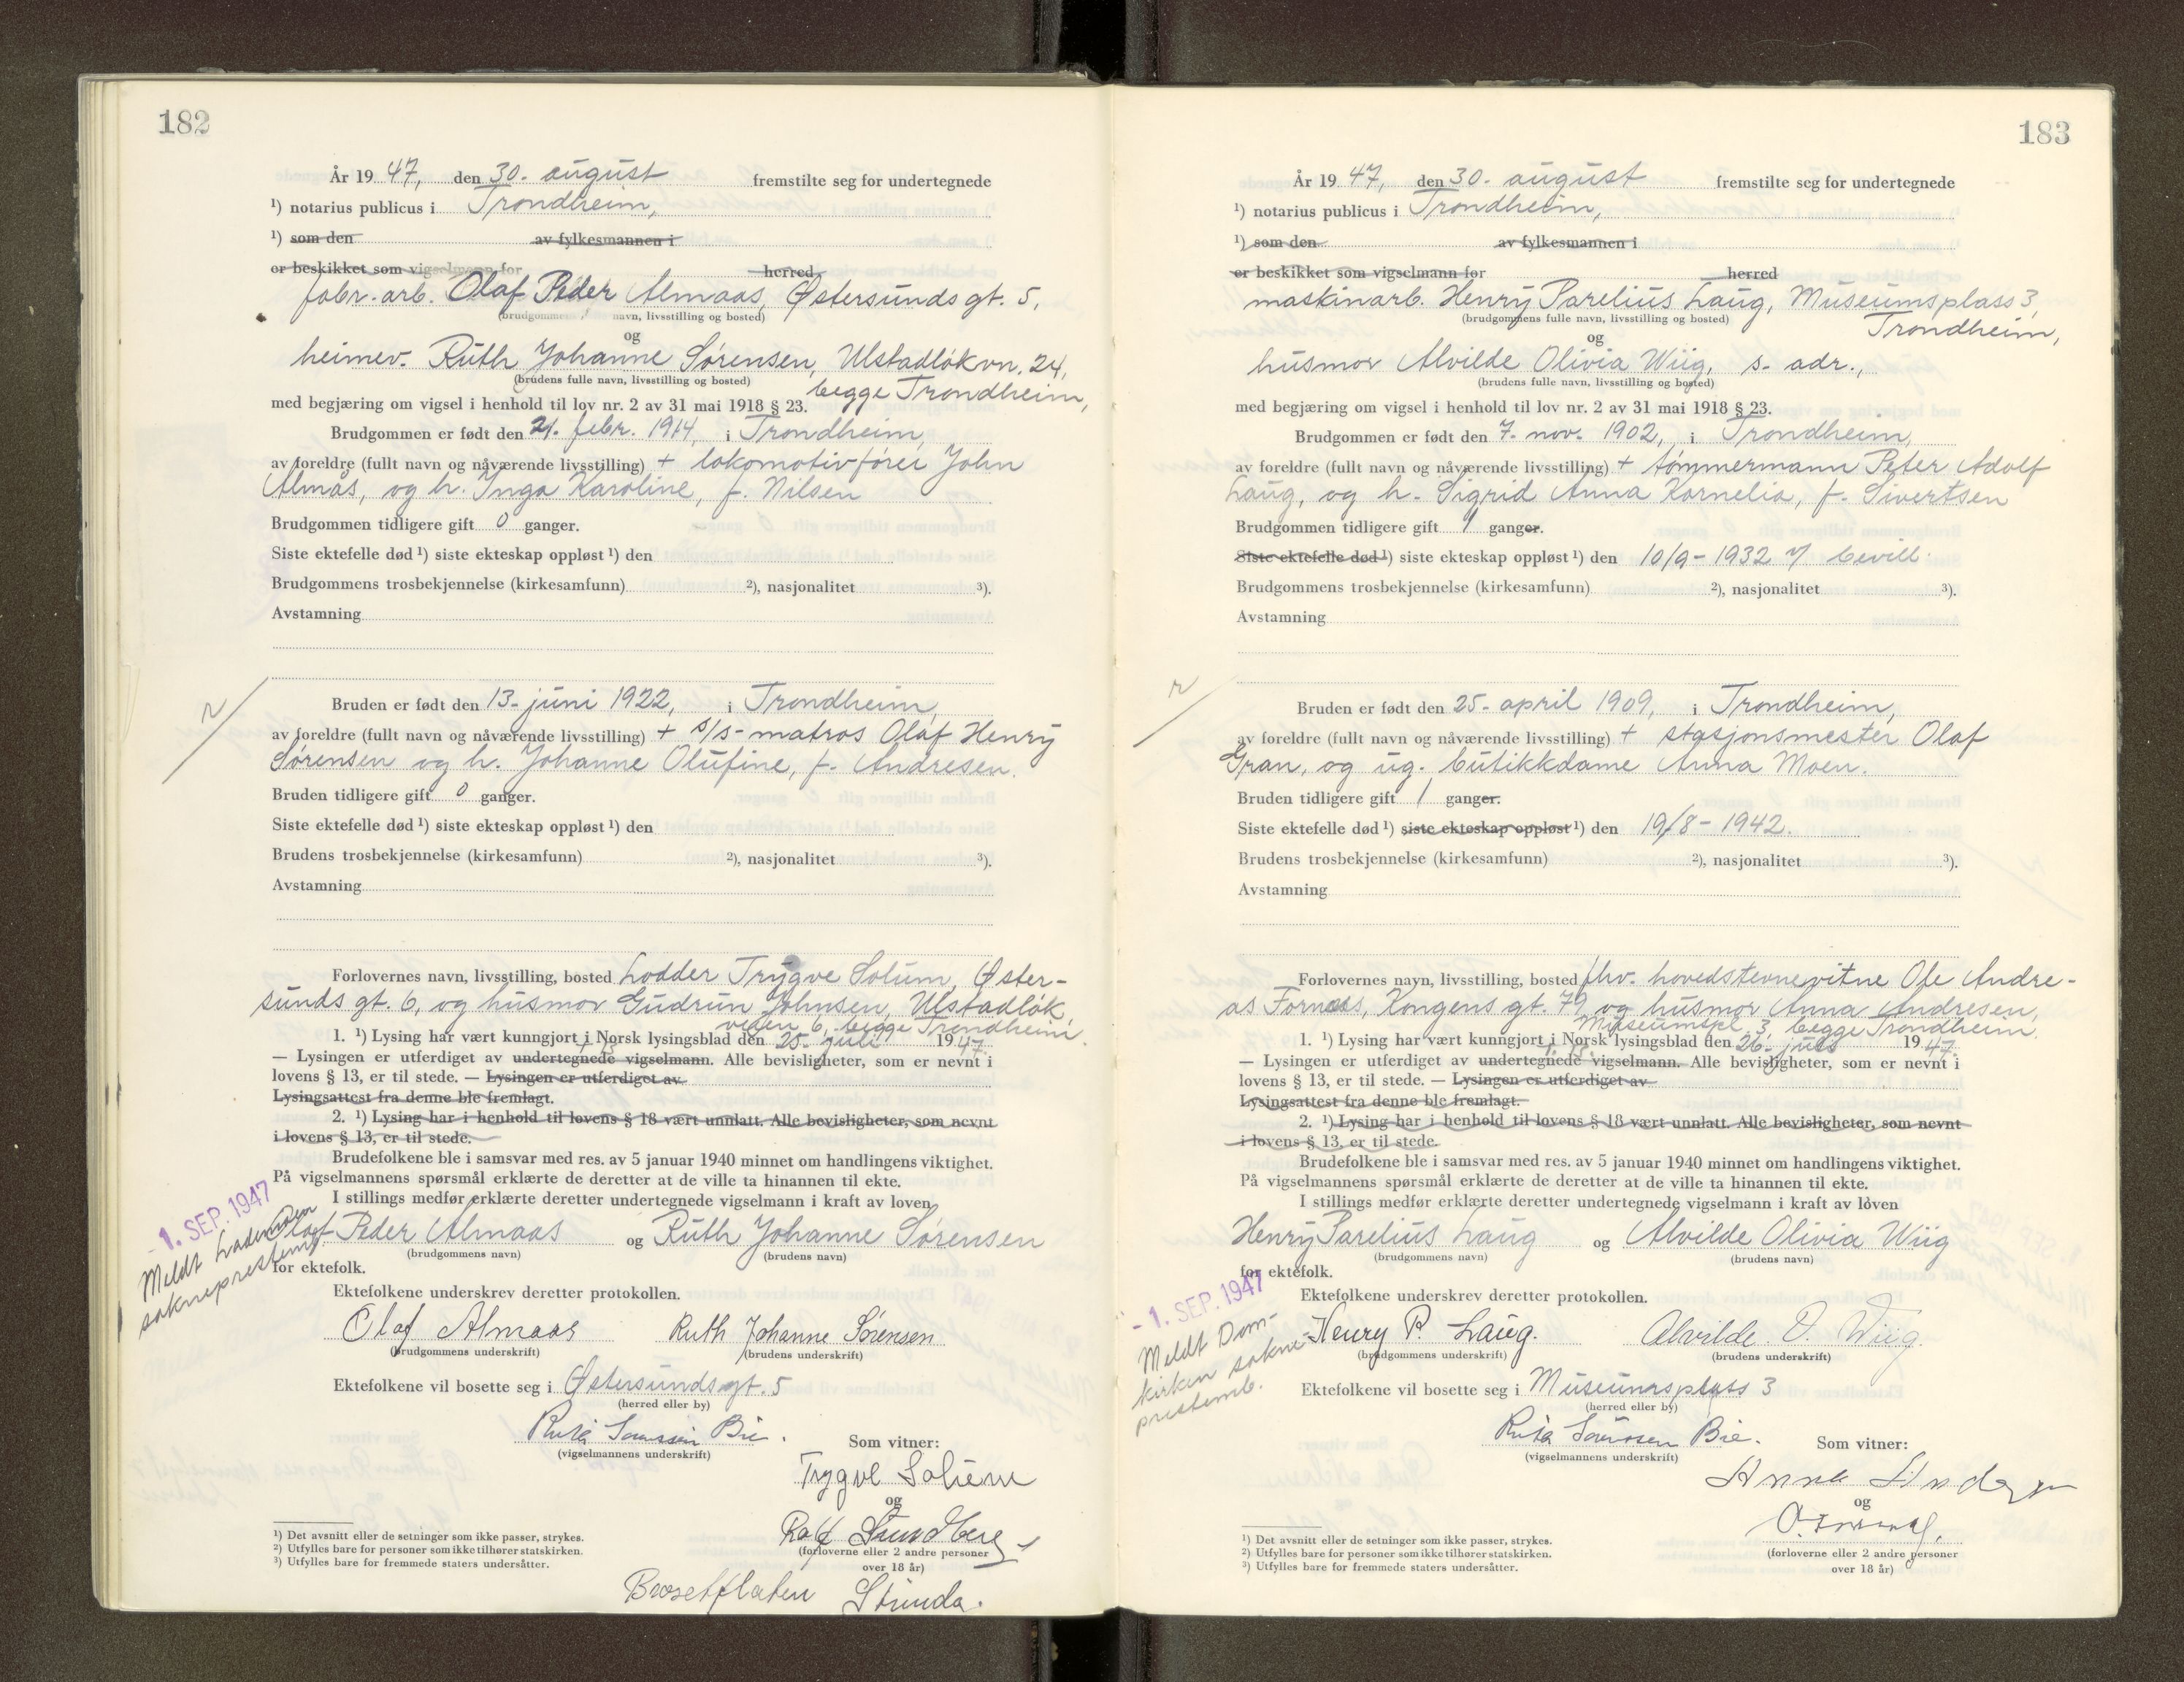 182
År 19 47, den 30. august fremstilte seg for undertegnede
¹) notarius publicus i Trondheim,
¹) som den av fylkesmannen i
er beskikket som vigselmann for herred
fabr.arb. Olaf Peder Almaas, Østersunds gt. 5,
(brudgommens navn, livsstilling og bosted)
og
heimev. Ruth Johanne Sørensen, Ulstadløkvn. 24,
(brudens fulle navn, livsstilling og bosted)
begge Trondheim,
med begjæring om vigsel i henhold til lov nr. 2 av 31 mai 1918 § 23.
Brudgommen er født den 21. febr. 1914, i Trondheim,
av foreldre (fullt navn og nåværende livsstilling) + lokomotivfører John
Almås, og h. Inga Karoline, f. Nilsen
Brudgommen tidligere gift 0 ganger.
Siste ektefelle død ¹) siste ekteskap oppløst ¹) den
Brudgommens trosbekjennelse (kirkesamfunn) ²), nasjonalitet ³).
Avstamning
Bruden er født den 13. juni 1922, i Trondheim,
av foreldre (fullt navn og nåværende livsstilling) + s/s-matros Olaf Henry
Sørensen og h. Johanne Olufine, f. Andresen.
Bruden tidligere gift 0 ganger.
Siste ektefelle død ¹) siste ekteskap oppløst ¹) den
Brudens trosbekjennelse (kirkesamfunn) ²), nasjonalitet ³).
Avstamning
Forlovernes navn, livsstilling, bosted Lodder Trygve Solum, Øster-
sunds gt. 6, og husmor Gudrun Johnsen, Ulstadløk
veien 6, begge Trondheim.
1. ¹) Lysing har vært kunngjort i Norsk lysingsblad den 25. juli 1947.
— Lysingen er utferdiget av undertegnede vigselmann. Alle bevisligheter, som er nevnt i
lovens § 13, er til stede. — Lysingen er utferdiget av
Lysingsattest fra denne ble fremlagt.
2. ¹) Lysing har i henhold til lovens § 18 vært unnlatt. Alle bevisligheter, som nevnt
i lovens § 13, er til stede.
Brudefolkene ble i samsvar med res. av 5 januar 1940 minnet om handlingens viktighet.
På vigselmannens spørsmål erklærte de deretter at de ville ta hinannen til ekte.
I stillings medfør erklærte deretter undertegnede vigselmann i kraft av loven
- 1. SEP. 1947
Meldt Lademoen
sokneprestemb.
Olaf Peder Almaas og Ruth Johanne Sørensen
(brudgommens navn) (brudens navn)
for ektefolk.
Ektefolkene underskrev deretter protokollen.
Olaf Almaas Ruth Johanne Sørensen
(brudgommens underskrift) (brudens underskrift)
Ektefolkene vil bosette seg i Østersunds gt. 5
(herred eller by)
Bie.
(vigselmannens underskrift)
Som vitner:
Trygve Solum
og
Rolf Sundberg
(forloverne eller 2 andre personer
over 18 år)
Brøsetflaten Strinda.
¹) Det avsnitt eller de setninger som ikke passer, strykes.
²) Utfylles bare for personer som ikke tilhører statskirken.
³) Utfylles bare for fremmede staters undersåtter.
183
År 19 47, den 30. august fremstilte seg for undertegnede
¹) notarius publicus i Trondheim,
¹) som den av fylkesmannen i
er beskikket som vigselmann for herred
maskinarb. Henry Parelius Laug, Museumsplass 3,
(brudgommens fulle navn, livsstilling og bosted)
Trondheim,
og
husmor Alvilde Olivia Wiig, s. adr.,
(brudens fulle navn, livsstilling og bosted)
med begjæring om vigsel i henhold til lov nr. 2 av 31 mai 1918 § 23.
Brudgommen er født den 7. nov. 1902, i Trondheim,
av foreldre (fullt navn og nåværende livsstilling) + tømmermann Peter Adolf
Laug, og h. Sigrid Anna Kornelia, f. Sivertsen
Brudgommen tidligere gift 1 ganger.
Siste ektefelle død ¹) siste ekteskap oppløst ¹) den 10/9 - 1932 v/ bevill.
Brudgommens trosbekjennelse (kirkesamfunn) ²), nasjonalitet ³).
Avstamning
Bruden er født den 25. april 1909, i Trondheim,
av foreldre (fullt navn og nåværende livsstilling) + stasjonsmester Olaf
Gran, og ug. butikkdame Anna Moen.
Bruden tidligere gift 1 ganger.
Siste ektefelle død ¹) siste ekteskap oppløst ¹) den 19/8 - 1942.
Brudens trosbekjennelse (kirkesamfunn) ²), nasjonalitet ³).
Avstamning
Forlovernes navn, livsstilling, bosted fhv. hovedstevnevitne Ole Andre-
as Fornæs, Kongens gt. 79 og husmor Anna Andresen,
Museumspl. 3, begge Trondheim.
1. ¹) Lysing har vært kunngjort i Norsk lysingsblad den 26. juli 1947.
— Lysingen er utferdiget av undertegnede vigselmann. Alle bevisligheter, som er nevnt i
lovens § 13, er til stede. — Lysingen er utferdiget av
Lysingsattest fra denne ble fremlagt.
2. ¹) Lysing har i henhold til lovens § 18 vært unnlatt. Alle bevisligheter, som nevnt
i lovens § 13, er til stede.
Brudefolkene ble i samsvar med res. av 5 januar 1940 minnet om handlingens viktighet.
På vigselmannens spørsmål erklærte de deretter at de ville ta hinannen til ekte.
I stillings medfør erklærte deretter undertegnede vigselmann i kraft av loven
Henry Parelius Laug og Alvilde Olivia Wiig
(brudgommens navn) (brudens navn)
for ektefolk.
- 1. SEP. 1947
Meldt Dom-
kirken sokne-
prestemb.
Ektefolkene underskrev deretter protokollen.
Henry P. Laug. Alvilde O. Wiig.
(brudgommens underskrift) (brudens underskrift)
Ektefolkene vil bosette seg i Museumsplass 3
(herred eller by)
Bie.
(vigselmannens underskrift)
Som vitner:
Anna
og
(forloverne eller 2 andre personer
over 18 år)
¹) Det avsnitt eller de setninger som ikke passer, strykes.
²) Utfylles bare for personer som ikke tilhører statskirken.
³) Utfylles bare for fremmede staters undersåtter.